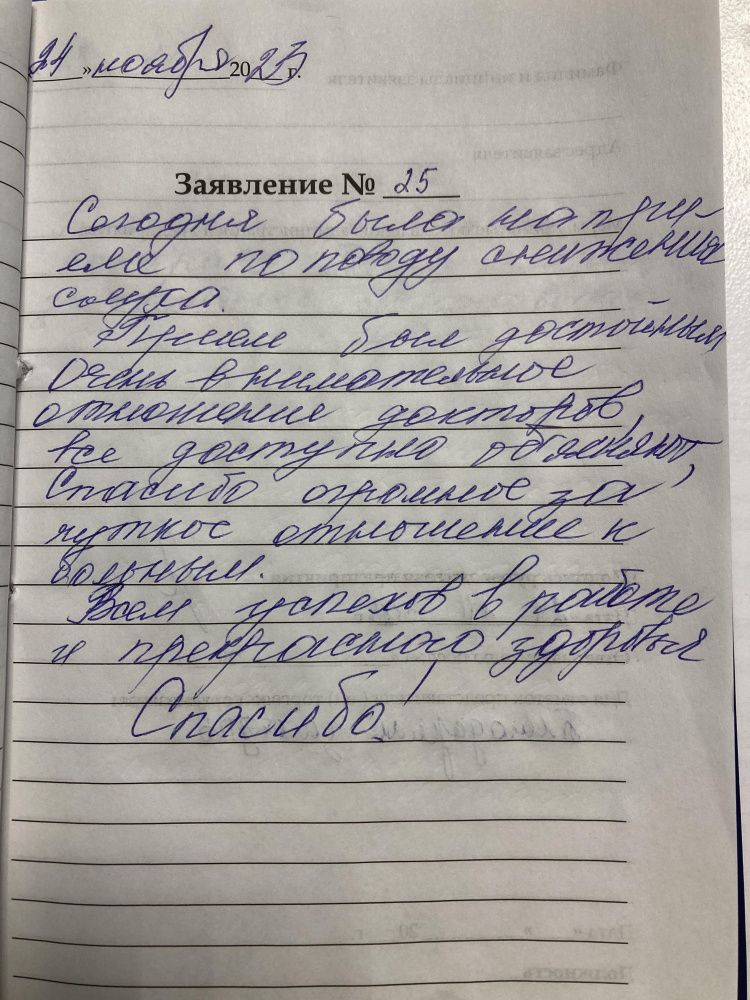 24 » ноября 2023 г.
Заявление № 25
Сегодня была на при-
еме по поводу снижения
слуха.
Прием был достойным
Очень внимательное
отношение докторов,
все доступно объясняют,
Спасибо огромное за
чуткое отношение к
больным.
Всем успехов в работе
и прекрасного здоровья
Спасибо!